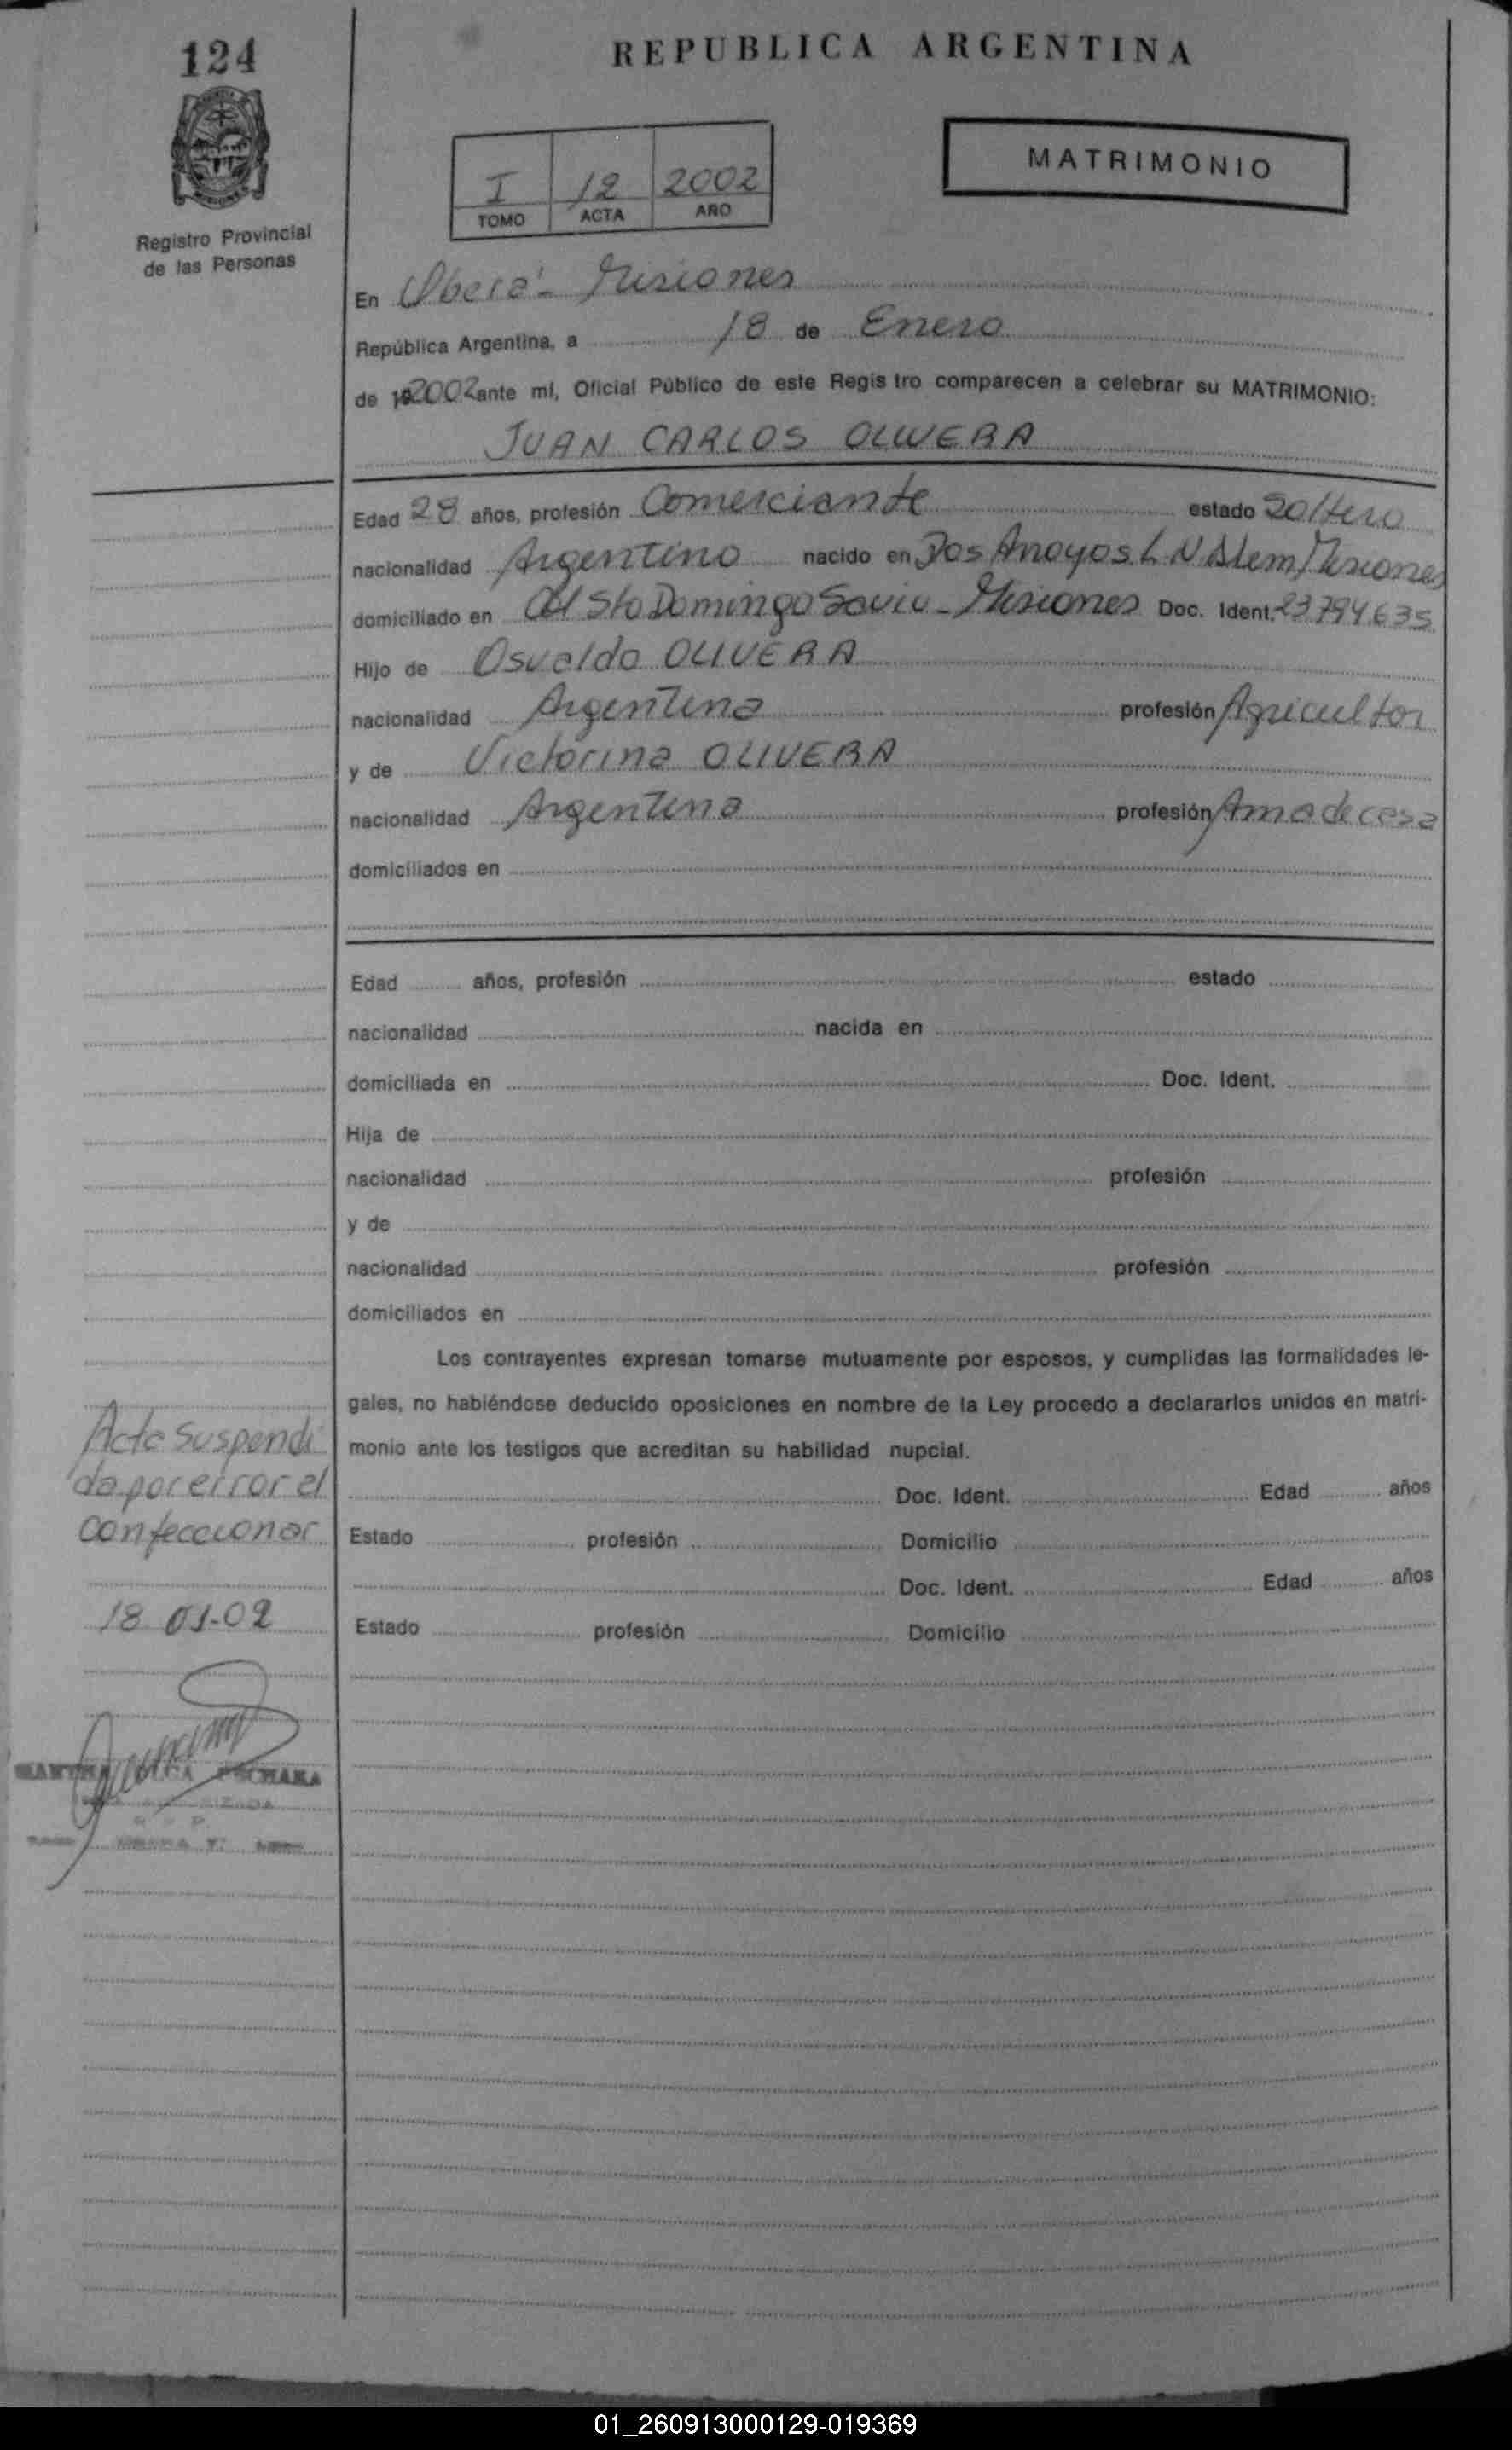 124
REPUBLICA ARGENTINA
I 12 2002
TOMO ACTA AÑO
MATRIMONIO
Registro Provincial
de las Personas
En Oberá - Misiones
República Argentina, a 18 de Enero
de 192002 ante mí, Oficial Público de este Regis tro comparecen a celebrar su MATRIMONIO:
JUAN CARLOS OLIVERA
Edad 28 años, profesión Comerciante estado Soltero
nacionalidad Argentino nacido en Dos Arroyos L.N.Alem/Misiones
domiciliado en Col Sto Domingo Savio - Misiones Doc. Ident. 23.794.635
Hijo de Osvaldo OLIVERA
nacionalidad Argentina profesión Agricultor
y de Victorina OLIVERA
nacionalidad Argentina profesión Ama de casa
domiciliados en
Edad años, profesión estado
nacionalidad nacida en
domiciliada en Doc. Ident.
Hija de
nacionalidad profesión
y de
nacionalidad profesión
domiciliados en
Los contrayentes expresan tomarse mutuamente por esposos, y cumplidas las formalidades le-
gales, no habiéndose deducido oposiciones en nombre de la Ley procedo a declararlos unidos en matri-
monio ante los testigos que acreditan su habilidad nupcial.
Doc. Ident. Edad años
Estado profesión Domicilio
Doc. Ident. Edad años
Estado profesión Domicilio
Acta Suspendi
da por error el
confeccionar
18-01-02
01_260913000129-019369